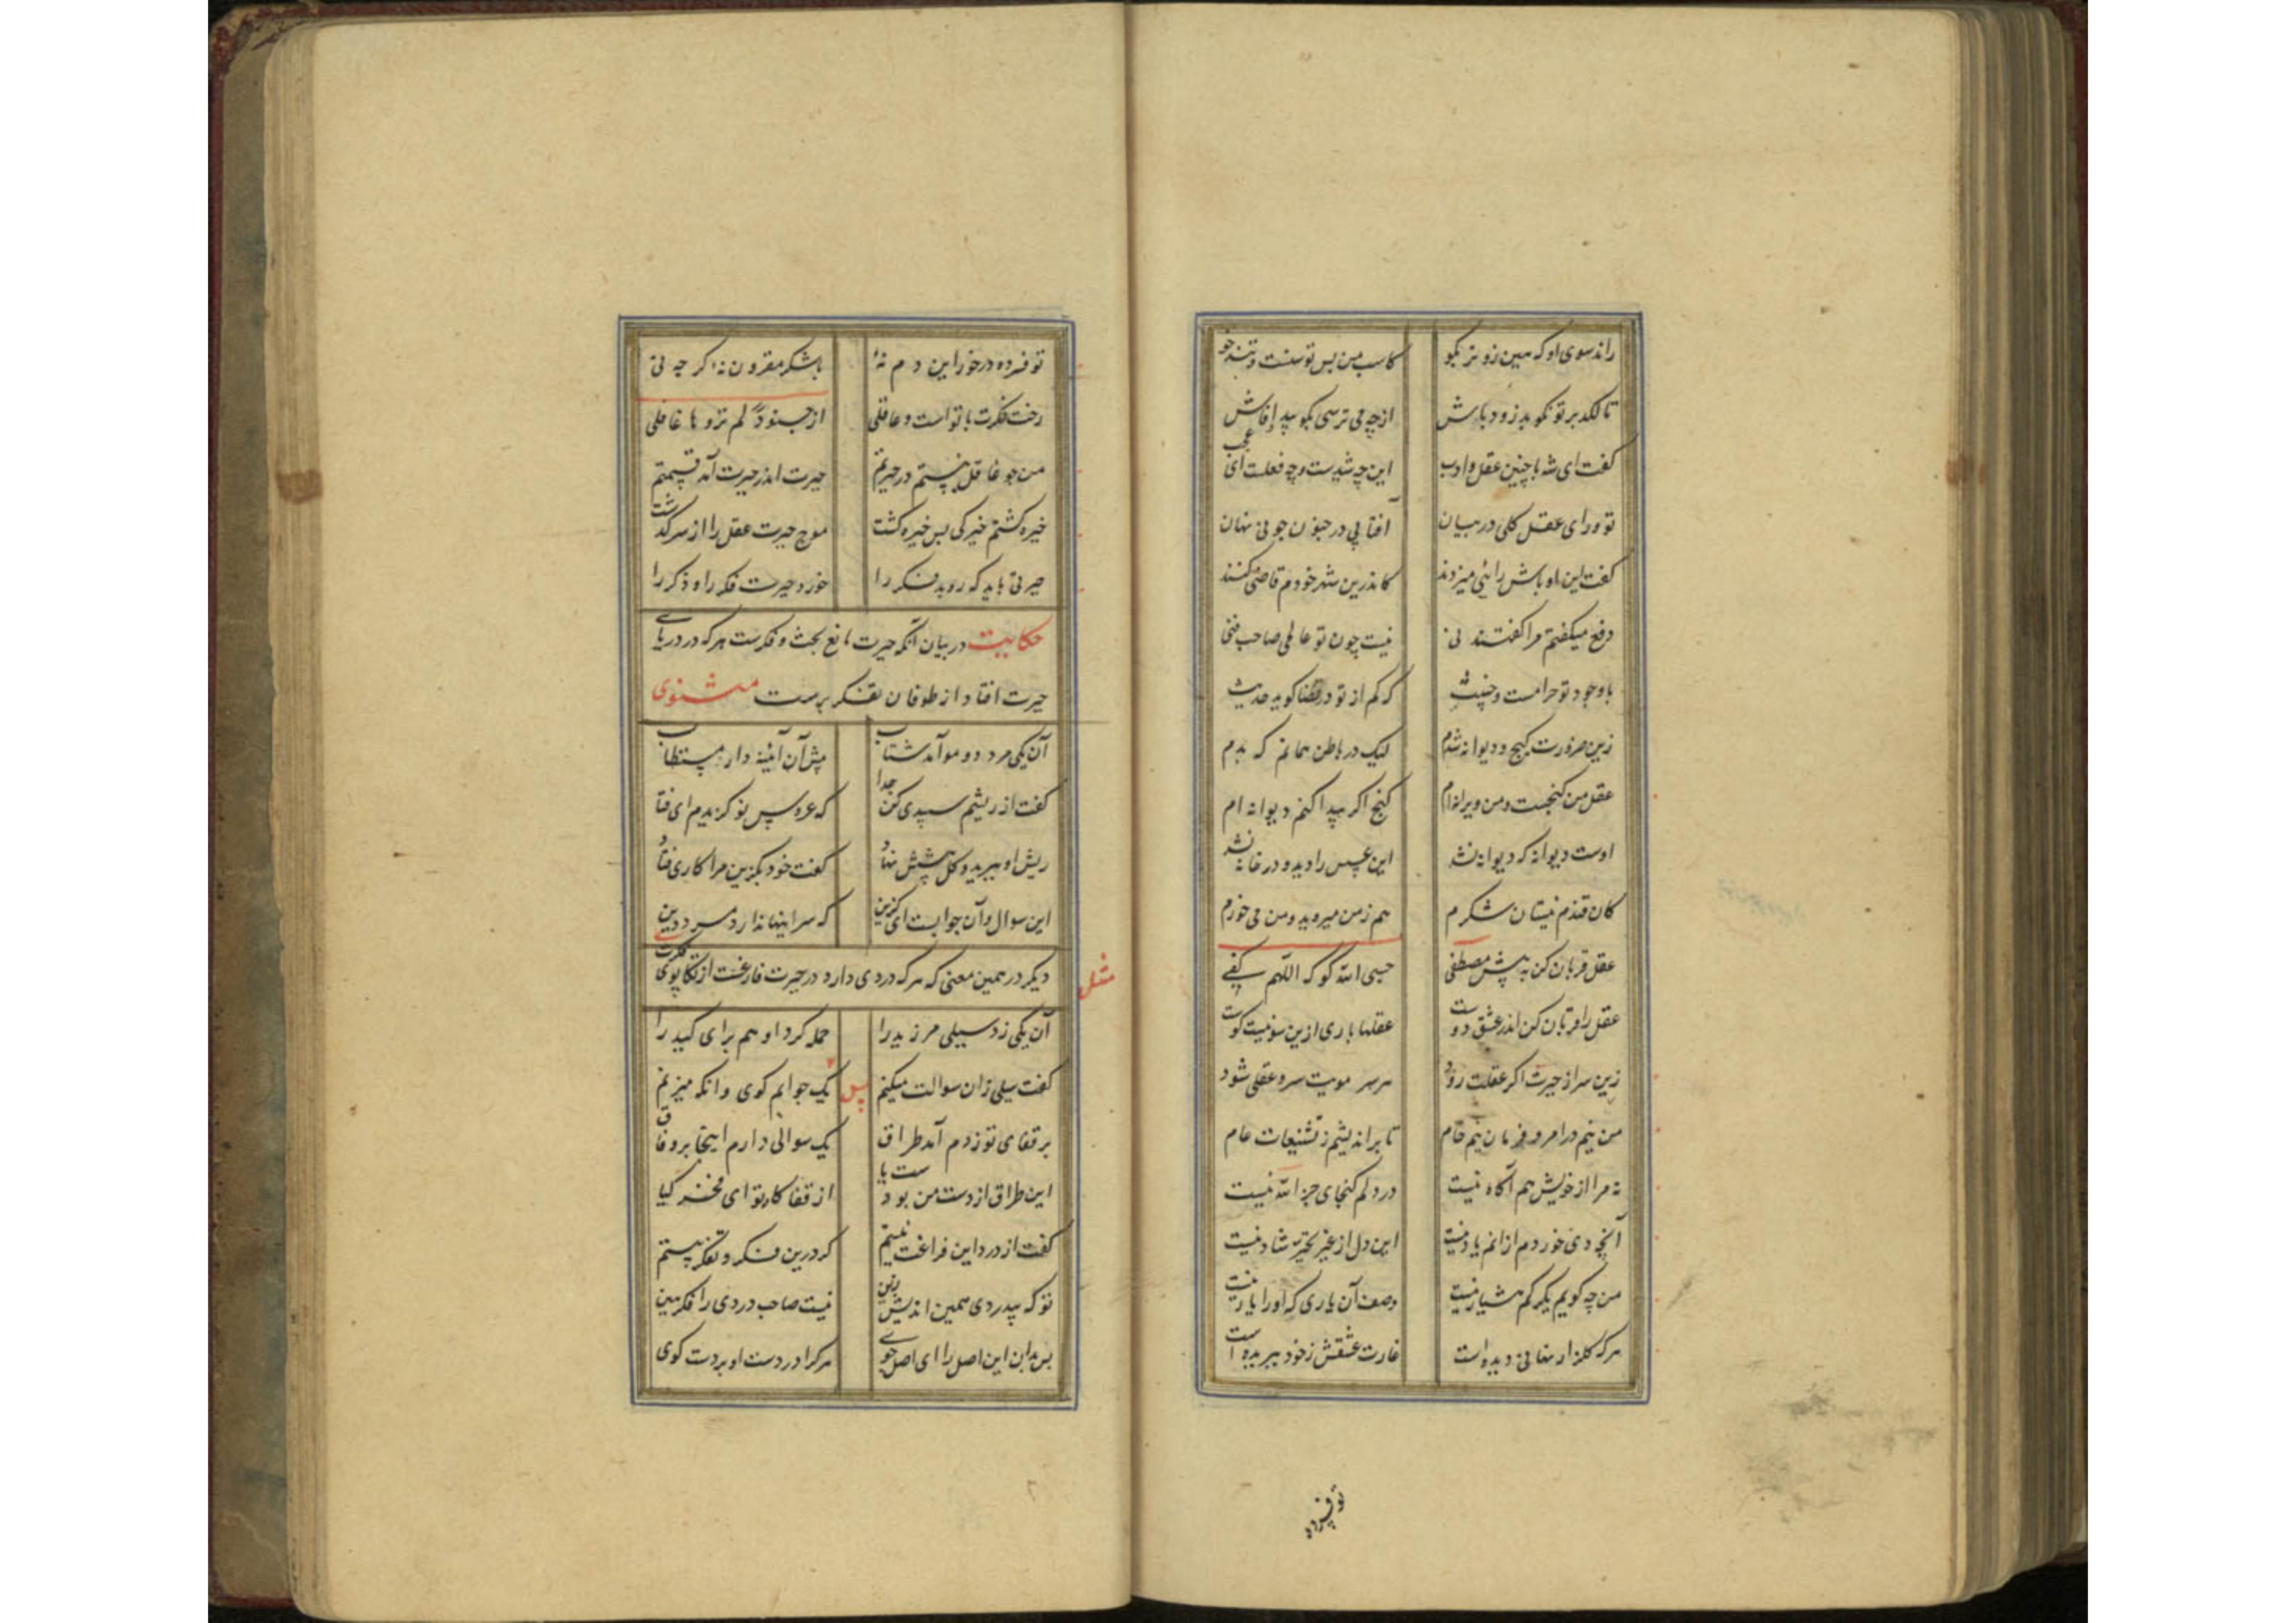 راند سوی او که هین زوتر بگو کاسب من بس توسنست و تندخو
تا لکد بر تو نکوبد زود باش از چه می ترسی بکو پیدا فاش
کفت ای شه با چنین عقل و ادب این چه شیدست و چه فعلت ای عجب
تو ورای عقل کلی در بیان آفتابی در جنون چونی نهان
کفت این اوباش رائی میزدند کاندرین شهر خودم قاضی کنند
دفع میکفتم مرا کفتند نی نیست چون تو عالمی صاحب فنی
با وجود تو حرامست و خبیث که کم از تو در قضا کوید حدیث
زین ضرورت کیج و دیوانه شدم لیک در باطن همانم که بدم
عقل من کنجست و من ویرانه ام کنج اکر پیدا کنم دیوانه ام
اوست دیوانه که دیوانه نشد این عسس را دید و در خانه نشد
کان قندم نیستان شکرم هم ز من میروید و من می خورم
عقل قربان کن به پیش مصطفی حسبی الله کو که اللهم کفی
عقل را قربان کن اندر عشق دوست عقلها باری ازین سو نیست کوست
زین سر از حیرت اکر عقلت رود هر سر مویت سر و عقلی شود
من نیم در امر و فرمان نیم خام تا براندیشم ز تشنیعات عام
نه مرا از خویش هم آکاه نیست در دلم کنجای جز الله نیست
آنچه دی خوردم از آنم یاد نیست این دل از غیر تحیر شاد نیست
من چه کویم یک رکم هشیار نیست وصف آن یاری که او را یار نیست
هر که کلزار نهانی دیده است غارت عشقش ز خود ببریده است
تو فسرده
تو فسرده در خور این دم نهٔ با شکر مقرون نهٔ کر چه نی
رخت فکرت با تو است و عاقلی از جنودا لم تروها غافلی
من چو غافل نیستم در حیرتم حیرت اندر حیرت آمد قسمتم
خیره کشتم خیرکی بس خیره کشت موج حیرت عقل را از سر کذشت
حیرتی باید که روبد فکر را خورد حیرت فکر را و ذکر را
حکایت در بیان آنکه حیرت مانع بحث و فکرست هر که در دریای
حیرت افتاد از طوفان تفکر برست مثنوی
آن یکی مرد دو مو آمد شتاب پیش آن آئینه دار مستطاب
کفت از ریشم سپیدی کن جدا که عروس نو کزیدم ای فتا
ریش او ببرید و کل پیشش نهاد کفت خود بکزین مرا کاری فتاد
این سوال و آن جوابست ای کزین که سر اینها ندارد مرد دین
دیکر در همین معنی که هر که دردی دارد در حیرت فارغست از تکاپوی فکرت
مثل
آن یکی زد سیلی مر زید را حمله کرد او هم برای کید را
کفت سیلی زن سوالت میکنم پس یک جوابم کوی وانکه میزنم
بر قفای تو زدم آمد طراق یک سوالی دارم اینجا بر وفاق
این طراق از دست من بودست یا از قفا کاه تو ای فخر کیا
کفت از درد این فراغت نیستم که درین فکر و تفکر بیستم
تو که بیدردی همین اندیش زین نیست صاحب درد را فکر هین
پس بدان این اصل را ای اصل جوی هر کرا دردست او بردست کوی